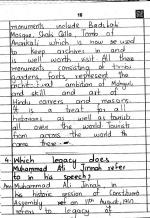 18
monuments include Badshahi
Mosque, Shahi Qilla, Tomb of
Anarkali which is now be used
to keep archives in and
is well worth visit. All these
monuments consisting of
gardens, forts, represent the
ambition of Mughals
and skill and art of
Hindu carvers and masons.
It is a treat for all
historians as well as tourists
all over the world. Tourists
from across the world
came these.
4. Which legacy does
Muhammad Ali Jinnah refer
to in his speech?
Ans Muhammad Ali Jinnah in
his historic session of Constituent
Assembly on 11th August, 1947
refers to legacy of